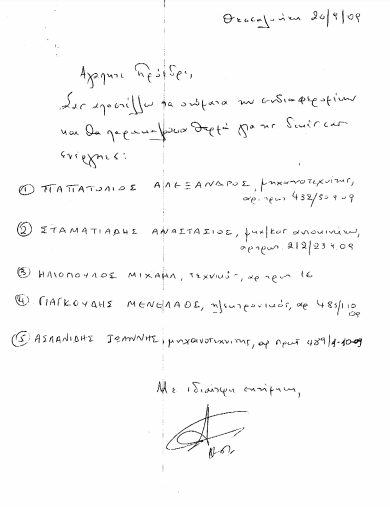 Θεσσαλονίκη 20/9/09
Αγαπητέ Πρόεδρε,
Σας αποστέλλω τα ονόματα των ενδιαφερομένων
και θα παρακαλούσα θερμά για τις δικές σας
ενέργειες:
① ΠΑΠΑΤΟΛΙΟΣ ΑΛΕΞΑΝΔΡΟΣ, μηχανοτεχνίτης,
αρ. πρωτ. 432/30 9 09
② ΣΤΑΜΑΤΙΑΔΗΣ ΑΝΑΣΤΑΣΙΟΣ, αυτοκινήτων,
αρ πρωτ. 212/23 9 09
③ ΗΛΙΟΠΟΥΛΟΣ ΜΙΧΑΗΛ, τεχνικός, αρ πρωτ 16
④ ΓΙΑΓΚΟΥΔΗΣ ΜΕΝΕΛΑΟΣ, ηλεκτρονικός, αρ 485/1 10
09
⑤ ΑΣΛΑΝΙΔΗΣ ΙΩΑΝΝΗΣ, μηχανοτεχνίτης, αρ πρωτ 489/1-10-09
Με ιδιαίτερη εκτίμηση,